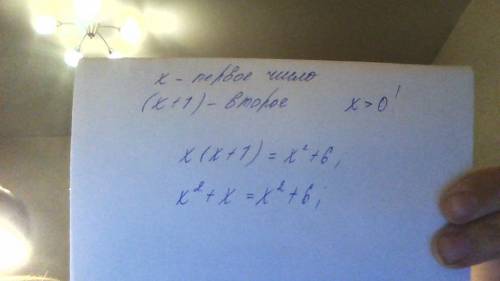 x - первое число
(x+1) - второе x>0!
x(x+1) = x²+6;
x²+x = x²+6;